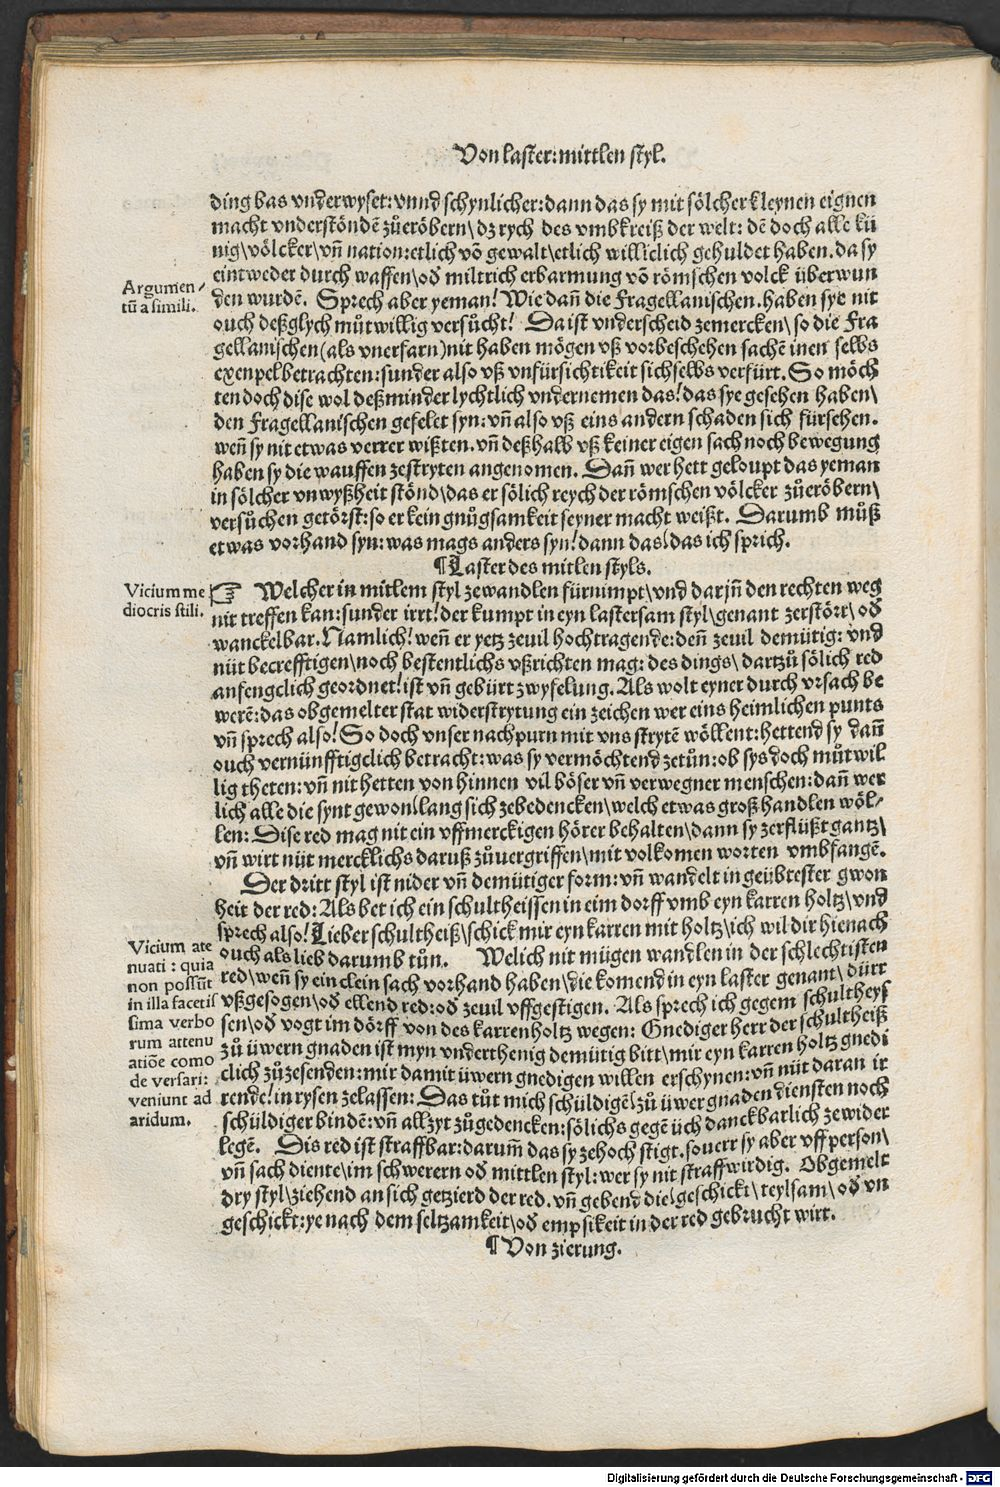 Von laster: mittlen styl.
ding bas vnderwyset: vnnd schynlicher: dann das sy mit sölcher kleynen eignen
macht vnderstöndē zůeröbern\ dz rych des vmbkreiß der welt: dē doch alle kü
nig\ völcker\ vn̄ nation: etlich vō gewalt\ etlich williclich gehuldet haben. da sy
eintweder durch waffen\ od̄ miltrich erbarmung vō römschen volck überwun
den wurdē. Sprech aber yeman! Wie dan̄ die Fragellanischen. haben sye nit
ouch deßglych můtwillig versůcht! Da ist vnderscheid zemercken\ so die Fra
gellanischen (als vnerfarn) nit haben mögen vß vorbeschehen sachē inen selbs
exenpel betrachten: sunder also vß vnfürsichtikeit sich selbs verfürt. So möch
ten doch dise wol deßminder lychtlich vndernemen das! das sye gesehen haben\
den Fragellanischen gefelet syn: vn̄ also vß eins andern schaden sich fürsehen.
wen̄ sy nit etwas verrer wißten. vn̄ deßhalb vß keiner eigen sach noch bewegung
haben sy die wauffen zestryten angenomen. Dan̄ wer hett geloupt das yeman
in sölcher vnwyßheit stönd\ das er sölich reych der römschen völcker zůeröbern\
versůchen getörst: so er kein gnůgsamkeit seyner macht weißt. Darumb můß
etwas vorhand syn: was mags anders syn! dann das! das ich sprich.
¶ Laster des mitlen styls.
☞ Welcher in mitlem styl zewandlen fürnimpt\ vnd darjn̄ den rechten weg
nit treffen kan: sunder irrt! der kumpt in eyn lastersam styl\ genant zerstört\ od̄
wanckelbar. Namlich! wen̄ er yetz zeuil hochtragende: den̄ zeuil demütig: vnd
nüt becrefftigen\ noch bestentlichs vßrichten mag: des dings\ dartzů sölich red
anfengclich geordnet! ist vn̄ gebürt zwyfelung. Als wolt eyner durch vrsach be
werē: das obgemelter stat widerstrytung ein zeichen wer eins heimlichen punts
vn̄ sprech also! So doch vnser nachpurn mit vns strytē wöllent: hettend sy dan̄
ouch vernünfftigclich betracht: was sy vermöchtend zetůn: ob sys doch můtwil
lig theten: vn̄ nit hetten von hinnen vil böser vn̄ verwegner menschen: dan̄ wer
lich alle die synt gewon! lang sich zebedencken\ welch etwas groß handlen wöl-
len: Dise red mag nit ein vffmerckigen hörer behalten\ dann sy zerflüßt gantz\
vn̄ wirt nüt mercklichs daruß zůuergriffen\ mit volkomen worten vmbfangē.
Der dritt styl ist nider vn̄ demütiger form: vn̄ wandelt in geübtester gwon
heit der red: Als bet ich ein schultheissen in eim dorff vmb eyn karren holtz\ vnd
sprech also! Lieber schultheiß\ schick mir eyn karren mit holtz\ ich wil dir hienach
ouch als lieb darumb tůn. Welich nit mügen wandlen in der schlechtisten
red\ wen̄ sy ein clein sach vorhand haben\ die komend in eyn laster genant\ dürr
vßgesogen\ od̄ ellend red: od̄ zeuil vffgestigen. Als sprech ich gegem schultheys
sen\ od̄ vogt im dörff von des karrenholtz wegen: Gnediger herr der schultheiß
zů üwern gnaden ist myn vnderthenig demütig bitt\ mir eyn karren holtz gnedi
clich zůzesenden: mir damit üwern gnedigen willen erschynen: vn̄ nüt daran ir
rende! in rysen zelassen: Das tůt mich schüldigē! zů üwer gnaden diensten noch
schüldiger bindē: vn̄ allzyt zůgedencken: sölichs gegē üch danckbarlich zewider
legē. Dis red ist straffbar: darum̄ das sy zehoch stigt. so verr sy aber vff person\
vn̄ sach diente\ im schwerern od̄ mittlen styl: wer sy nit straffwirdig. Obgemelt
dry styl\ ziehend an sich getzierd der red. vn̄ gebend die! geschickt\ teylsam\ od̄ vn
geschickt: ye nach dem seltzamkeit\ od̄ empsikeit in der red gebrucht wirt.
¶ Von zierung.
Argumen-
tū a simili.
Vicium me
diocris stili.
Vicium ate
nuati: quia
non possūt
in illa facetis
sima verbo
rum attenu
atiōe como
de versari:
veniunt ad
aridum.
Digitalisierung gefördert durch die Deutsche Forschungsgemeinschaft - DFG